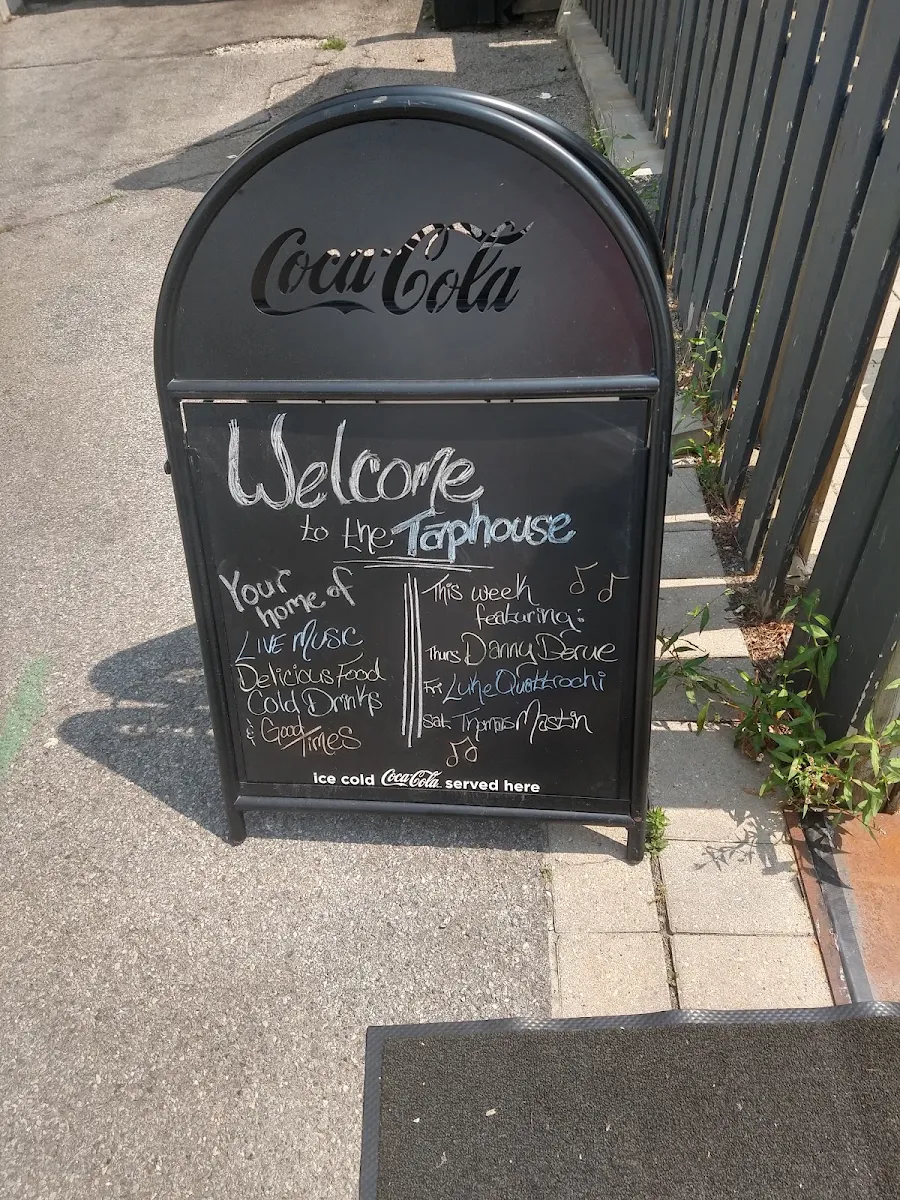 Coca-Cola
Welcome
to the Taphouse
Your
home of
LIVE MUSIC
Delicious Food
Cold Drinks
& Good
Times
This week
featuring:
Thurs Danny Derue
Fri Luke Quattrochi
Sat Thomas Mastin
ice cold Coca-Cola served here